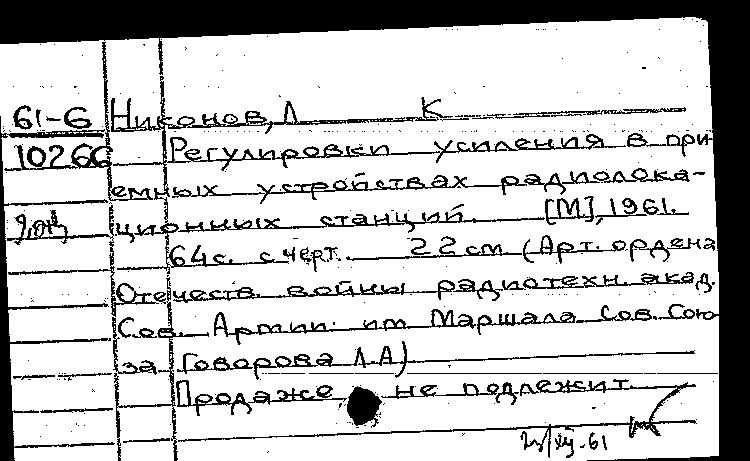 61-6 Никонов, Л К
10266 Регулировки усиления в при-
емных устройствах радиолока-
ционных станций. [М], 1961.
64с. с черт. 22 см (Арт. ордена
Отечеств. войны радиотехн. акад.
Сов. Армии им Маршала Сов. Сою-
за Говорова Л.А)
Продаже не подлежит.
61